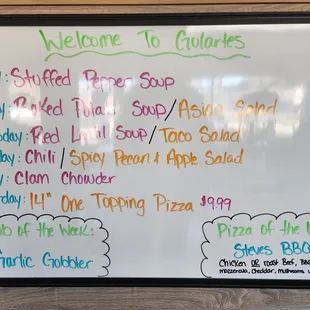 Welcome To Gularte's
: Stuffed Pepper Soup
Baked Potato Soup/Asian Salad
day: Red Lentil Soup/Taco Salad
day: Chili/Spicy Pecan & Apple Salad
: Clam Chowder
day: 14" One Topping Pizza $9.99
of the Week:
Garlic Gobbler
Pizza of the
Steves BBQ
Chicken OR roast Beef, BBQ
Mozzerella, Cheddar, mushrooms